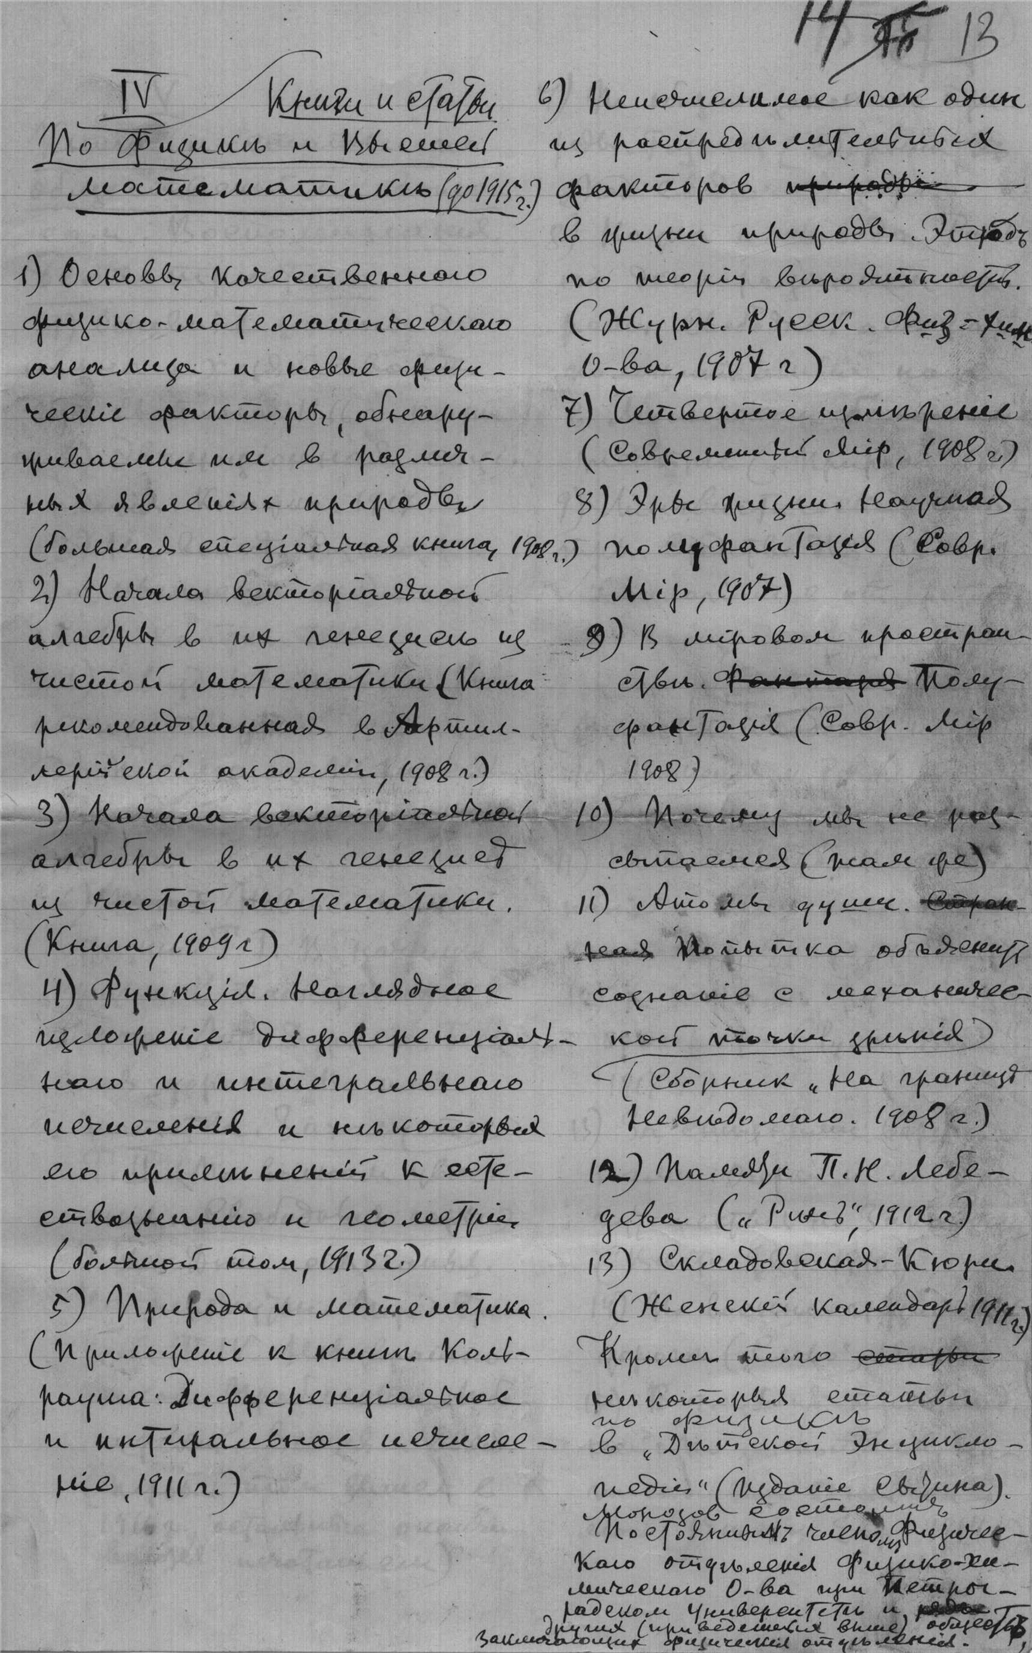 14 13
IV Книги и статьи
по физикѣ и высшей
математикѣ (до 1915 г.)
1) Основы качественнаго
физико-математическаго
анализа и новые физи-
ческіе факторы, обнару-
живаемые им в различ-
ных явленіях природы
(большая спеціальная книга, 1908 г.)
2) Начала векторіальной
алгебры в их генезисѣ из
чистой математики (Книга
рекомендованная в Артил-
лерійской академіи, 1908 г.)
3) Начала векторіальной
алгебры в их генезисѣ
из чистой математики.
(Книга, 1909 г)
4) Функція. Наглядное
изложеніе дифференціаль-
наго и интегральнаго
исчисленія и нѣкоторыя
его примѣненій к есте-
ствознанію и геометріи
(большой том, 1913 г.)
5) Природа и математика.
(Приложеніе к книгѣ Коль-
рауша: Дифференціальное
и интегральное исчисле-
ніе, 1911 г.)
6) Неисчислимое как один
из распредѣлительных
факторов природы
в жизни природы. Этюдъ
по теоріи вѣроятностей.
(Журн. Русск. Физ-хим
О-ва, 1907 г)
7) Четвертое измѣреніе
(Современный Мір, 1908 г.)
8) Эры жизни. Научная
полуфантазія (Совр.
Мір, 1907)
9) В міровом простран-
ствѣ. Фантазія Полу-
фантазія (Совр. Мір
1908)
10) Почему мы не раз-
сыпаемся (там же)
11) Атомы души. Стран-
ная Попытка объяснить
сознаніе с механичес-
кой точки зрѣнія)
(Сборник „На границѣ
Невѣдомаго. 1908 г.)
12) Памяти П. Н. Лебе-
дева („Рѣчь", 1912 г.)
13) Складовская-Кюри
(Женскій календарь 1911 г.)
Кромѣ того статьи
нѣкоторыя статьи
по физикѣ
в „Дѣтской Энцикло-
педіи" (изданіе Сытина).
Морозов состоитъ
Постояннымъ членом Физичес-
каго отдѣленія Физико-хи-
мическаго О-ва при Петро-
градском университетѣ и
других (приведенных выше) обществъ,
заключающих физическія отдѣленія.